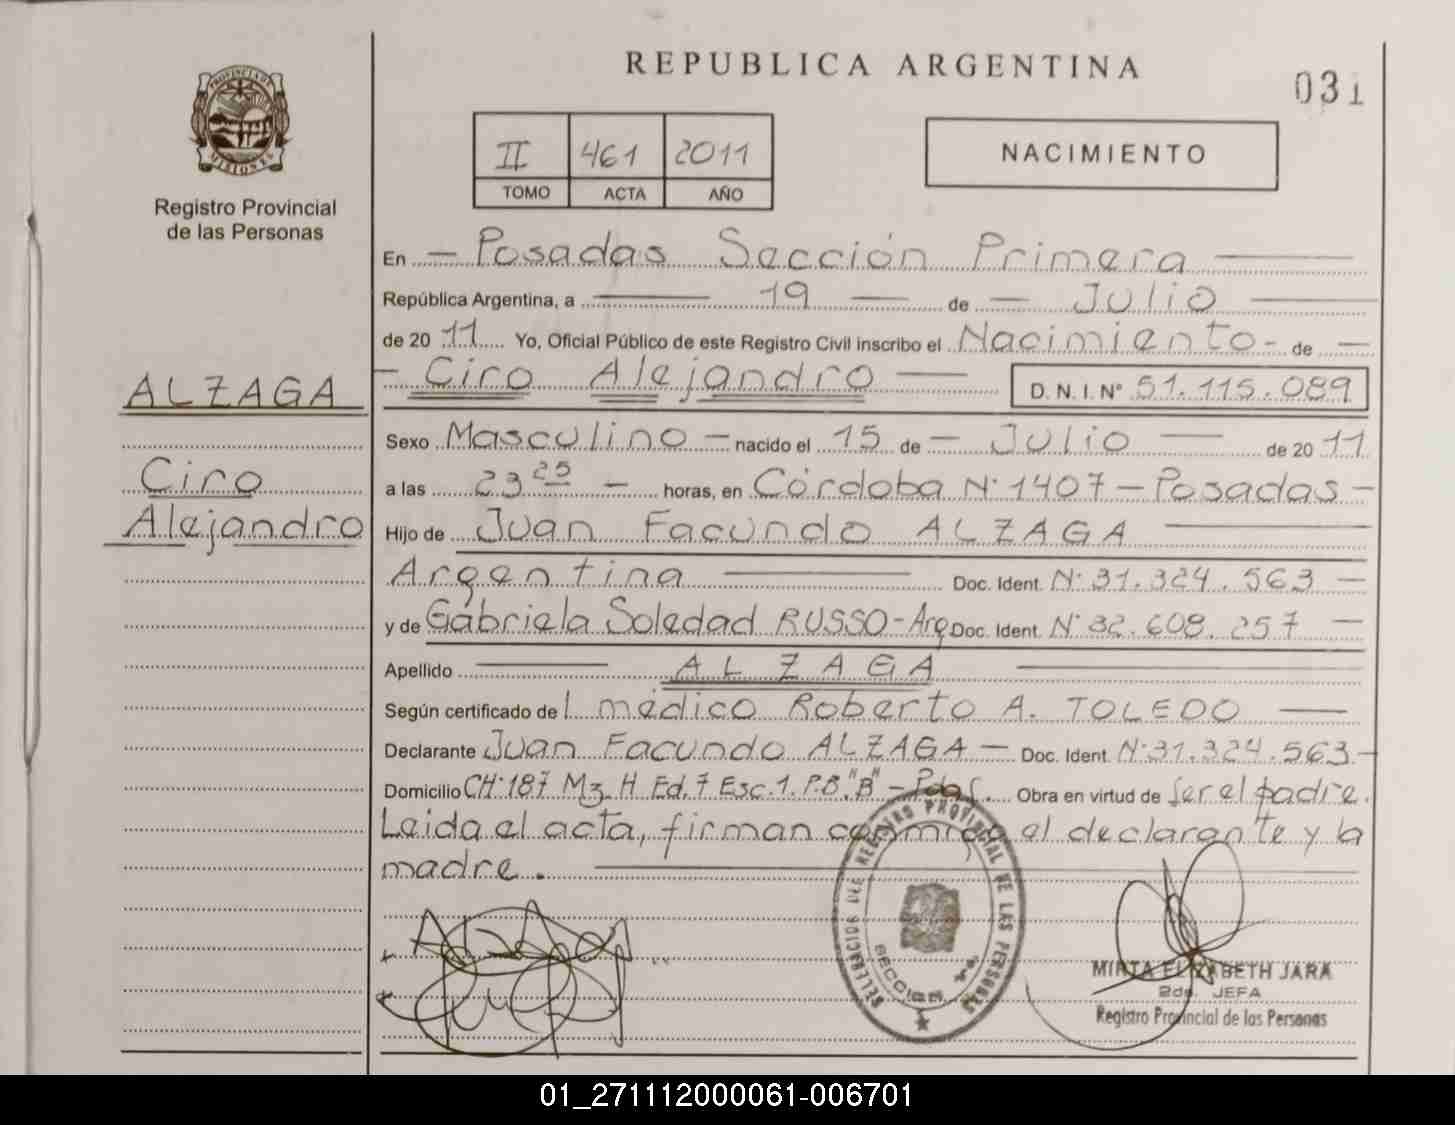 PROVINCIA DE
MISIONES
Registro Provincial
de las Personas
ALZAGA
Ciro
Alejandro
REPUBLICA ARGENTINA
031
II 461 2011
TOMO ACTA AÑO
NACIMIENTO
En — Posadas Sección Primera —
República Argentina, a — 19 — de — Julio —
de 20 11 Yo, Oficial Público de este Registro Civil inscribo el Nacimiento - de —
- Ciro Alejandro — D.N.I. Nº 51.115.089
Sexo Masculino — nacido el 15 de — Julio — de 20 11
a las 23 25 — horas, en Córdoba Nº 1407 — Posadas —
Hijo de Juan Facundo ALZAGA —
Argentina — Doc. Ident. Nº 31.324.563 —
y de Gabriela Soledad RUSSO - Arg Doc. Ident. Nº 32.608.257 —
Apellido — ALZAGA —
Según certificado de l médico Roberto A. TOLEDO —
Declarante Juan Facundo ALZAGA — Doc. Ident. Nº 31.324.563 —
Domicilio CH. 187 Mz. H Ed. 7 Esc. 1. P.B. "B" - Pdas. Obra en virtud de ser el padre.
Leida el acta, firman conmigo el declarante y la
madre. —
DELEGACION DEL REGISTRO PROVINCIAL DE LAS PERSONAS
SECCION 1a.
MIRTA ELIZABETH JARA
2da. JEFA
Registro Provincial de las Personas
01_271112000061-006701